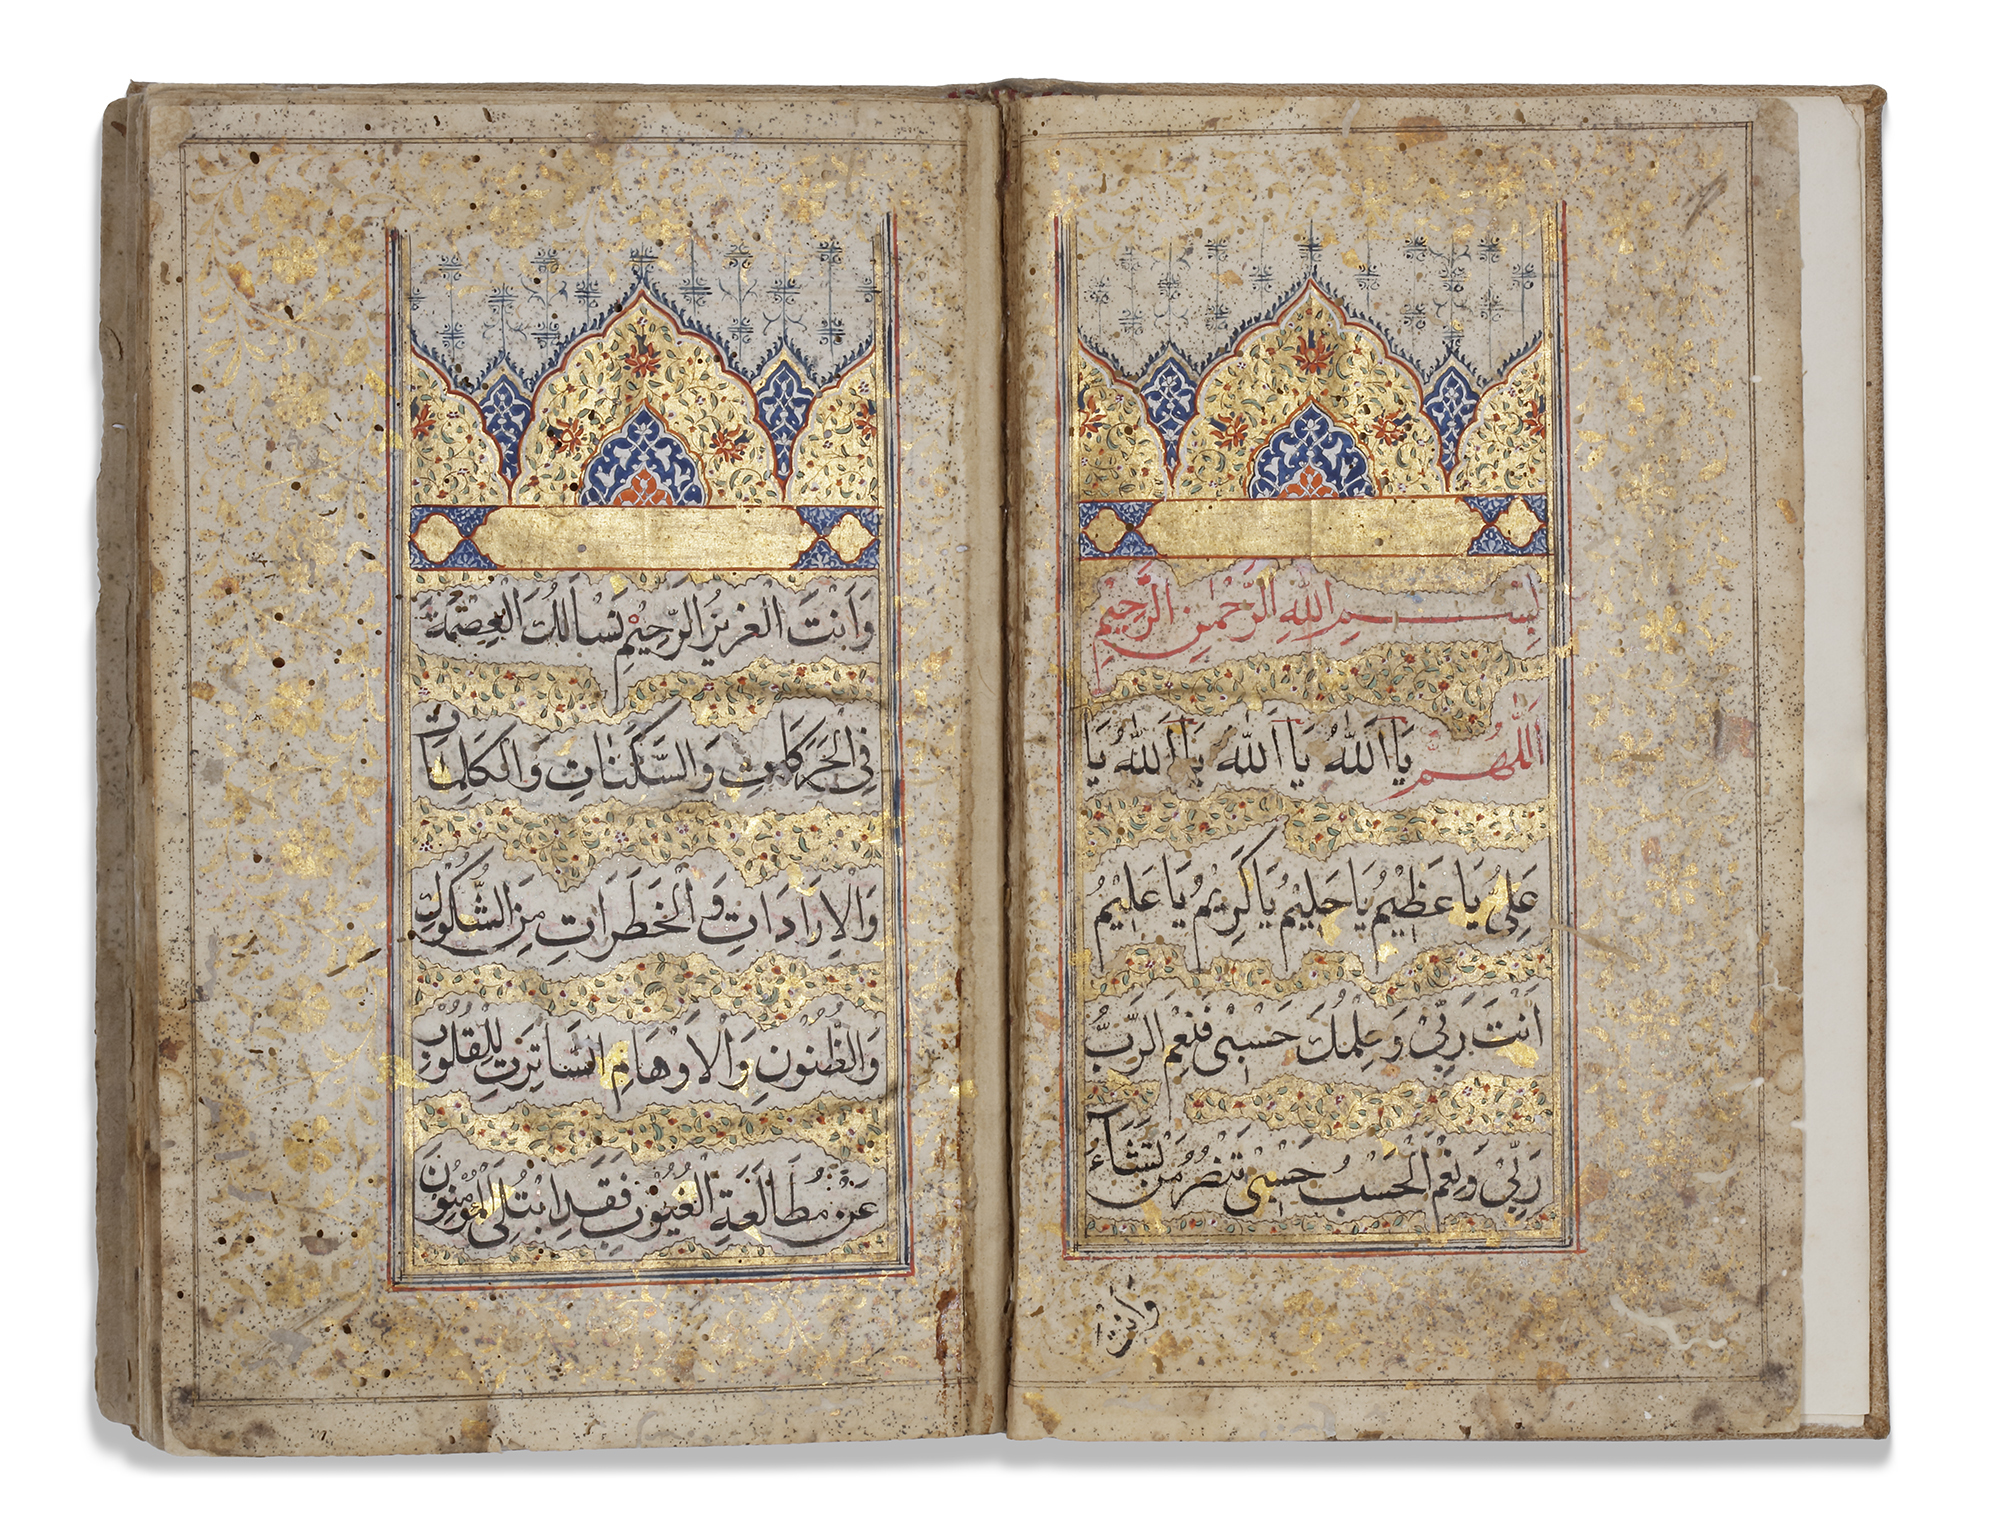 بِسْمِ اللهِ الرَّحْمٰنِ الرَّحِيْمِ
اَللّٰهُمَّ يَا اَللّٰهُ يَا اَللّٰهُ يَا اَللّٰهُ يَا
عَلِيُّ يَا عَظِيْمُ يَا حَلِيْمُ يَا كَرِيْمُ يَا عَلِيْمُ
اَنْتَ رَبِّيْ وَعِلْمُكَ حَسْبِيْ فَنِعْمَ الرَّبُّ
رَبِّيْ وَنِعْمَ الْحَسْبُ حَسْبِيْ تَنْصُرُ مَنْ تَشَآءُ
وَاَنْتَ
وَاَنْتَ الْعَزِيْزُ الرَّحِيْمُ نَسْاَلُكَ الْعِصْمَةَ
فِي الْحَرَكَاتِ وَالسَّكَنَاتِ وَالْكَلِمَاتِ
وَالْاِرَادَاتِ وَالْخَطَرَاتِ مِنَ الشُّكُوْكِ
وَالظُّنُوْنِ وَالْاَوْهَامِ السَّاتِرَتِ لِلْقُلُوْبِ
عَنْ مُطَالَعَةِ الْغُيُوْبِ فَقَدِ ابْتُلِيَ الْمُؤْمِنُوْنَ